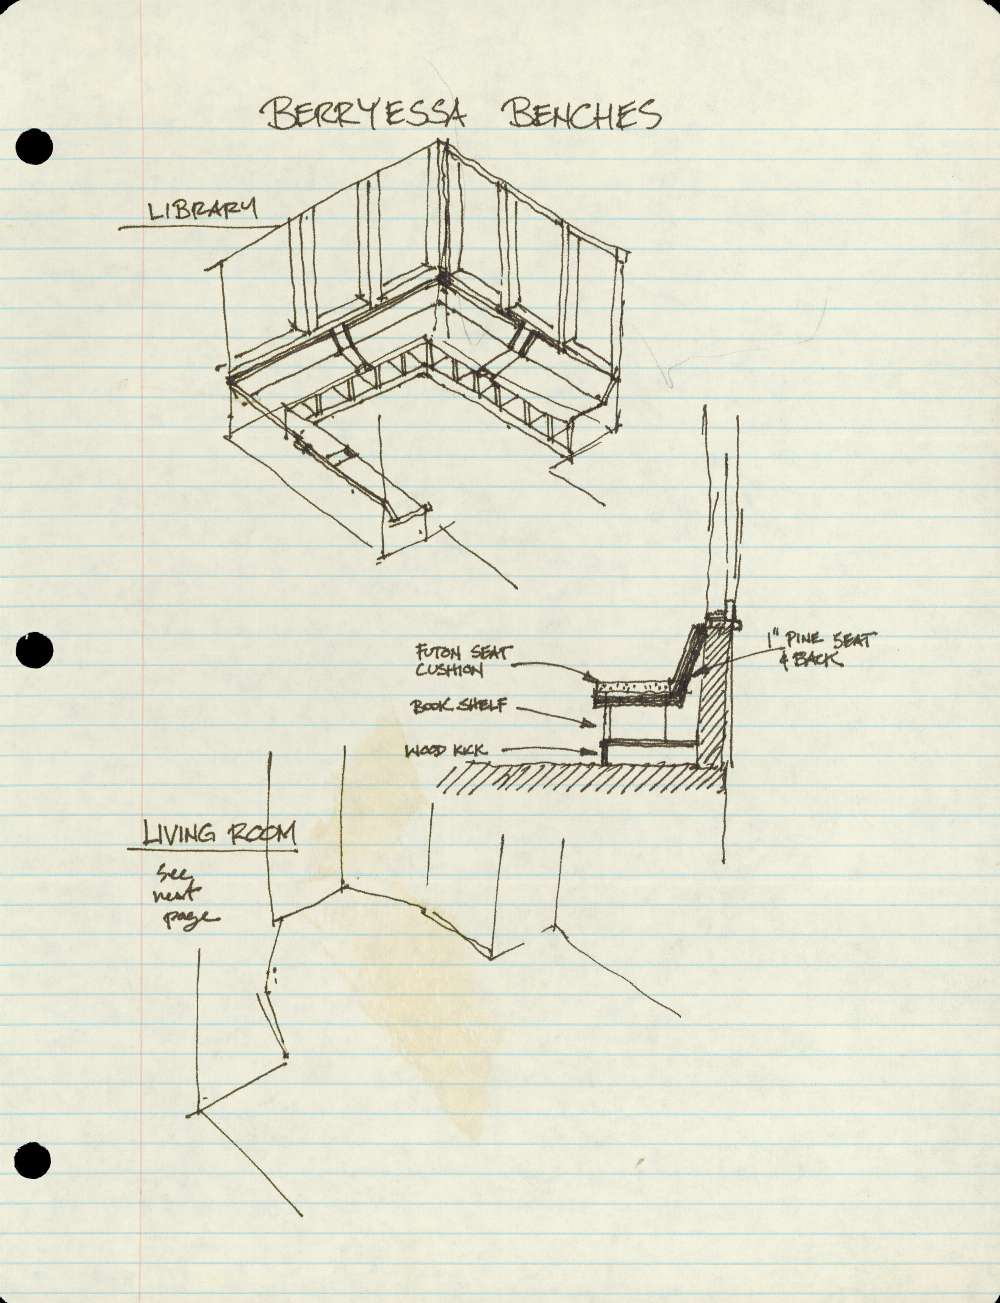 BERRYESSA BENCHES
LIBRARY
FUTON SEAT
CUSHION
1" PINE SEAT
& BACK
BOOK SHELF
WOOD KICK
LIVING ROOM
See
next
page